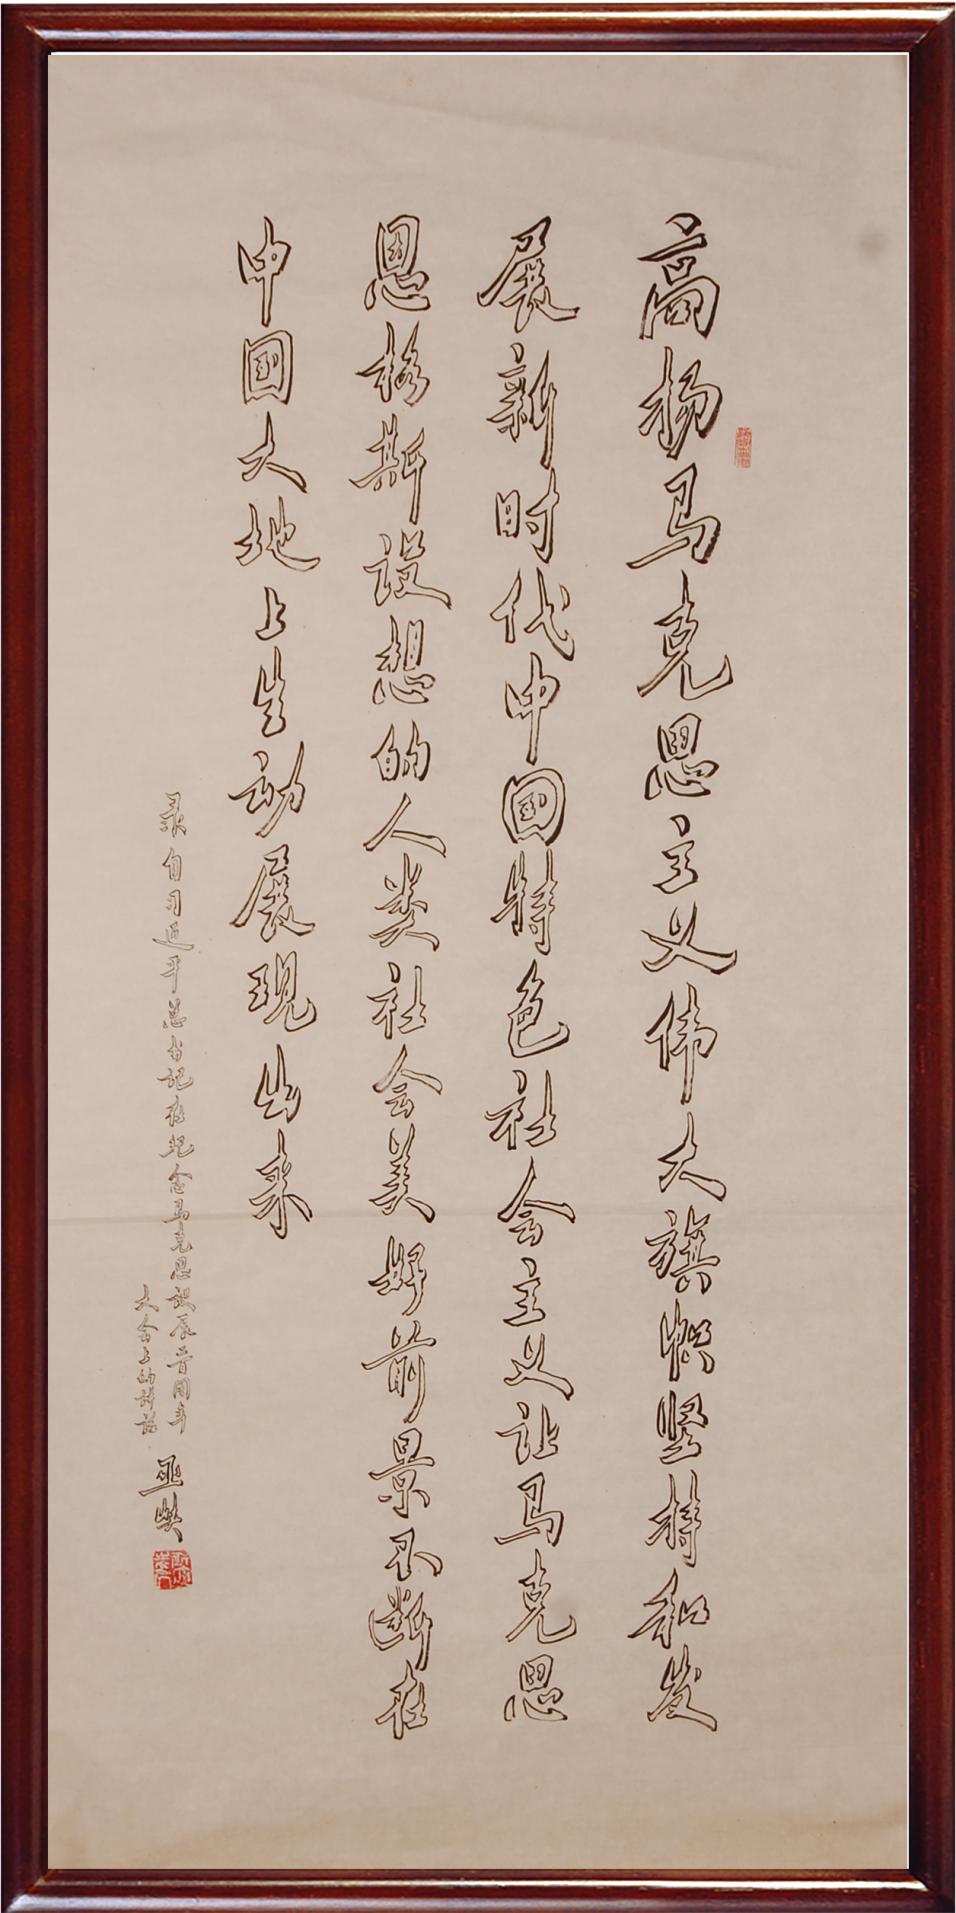 高扬马克思主义伟大旗帜坚持和发
展新时代中国特色社会主义让马克思
恩格斯设想的人类社会美好前景不断在
中国大地上生动展现出来
录自习近平总书记在纪念马克思诞辰二百周年
大会上的讲话
亚